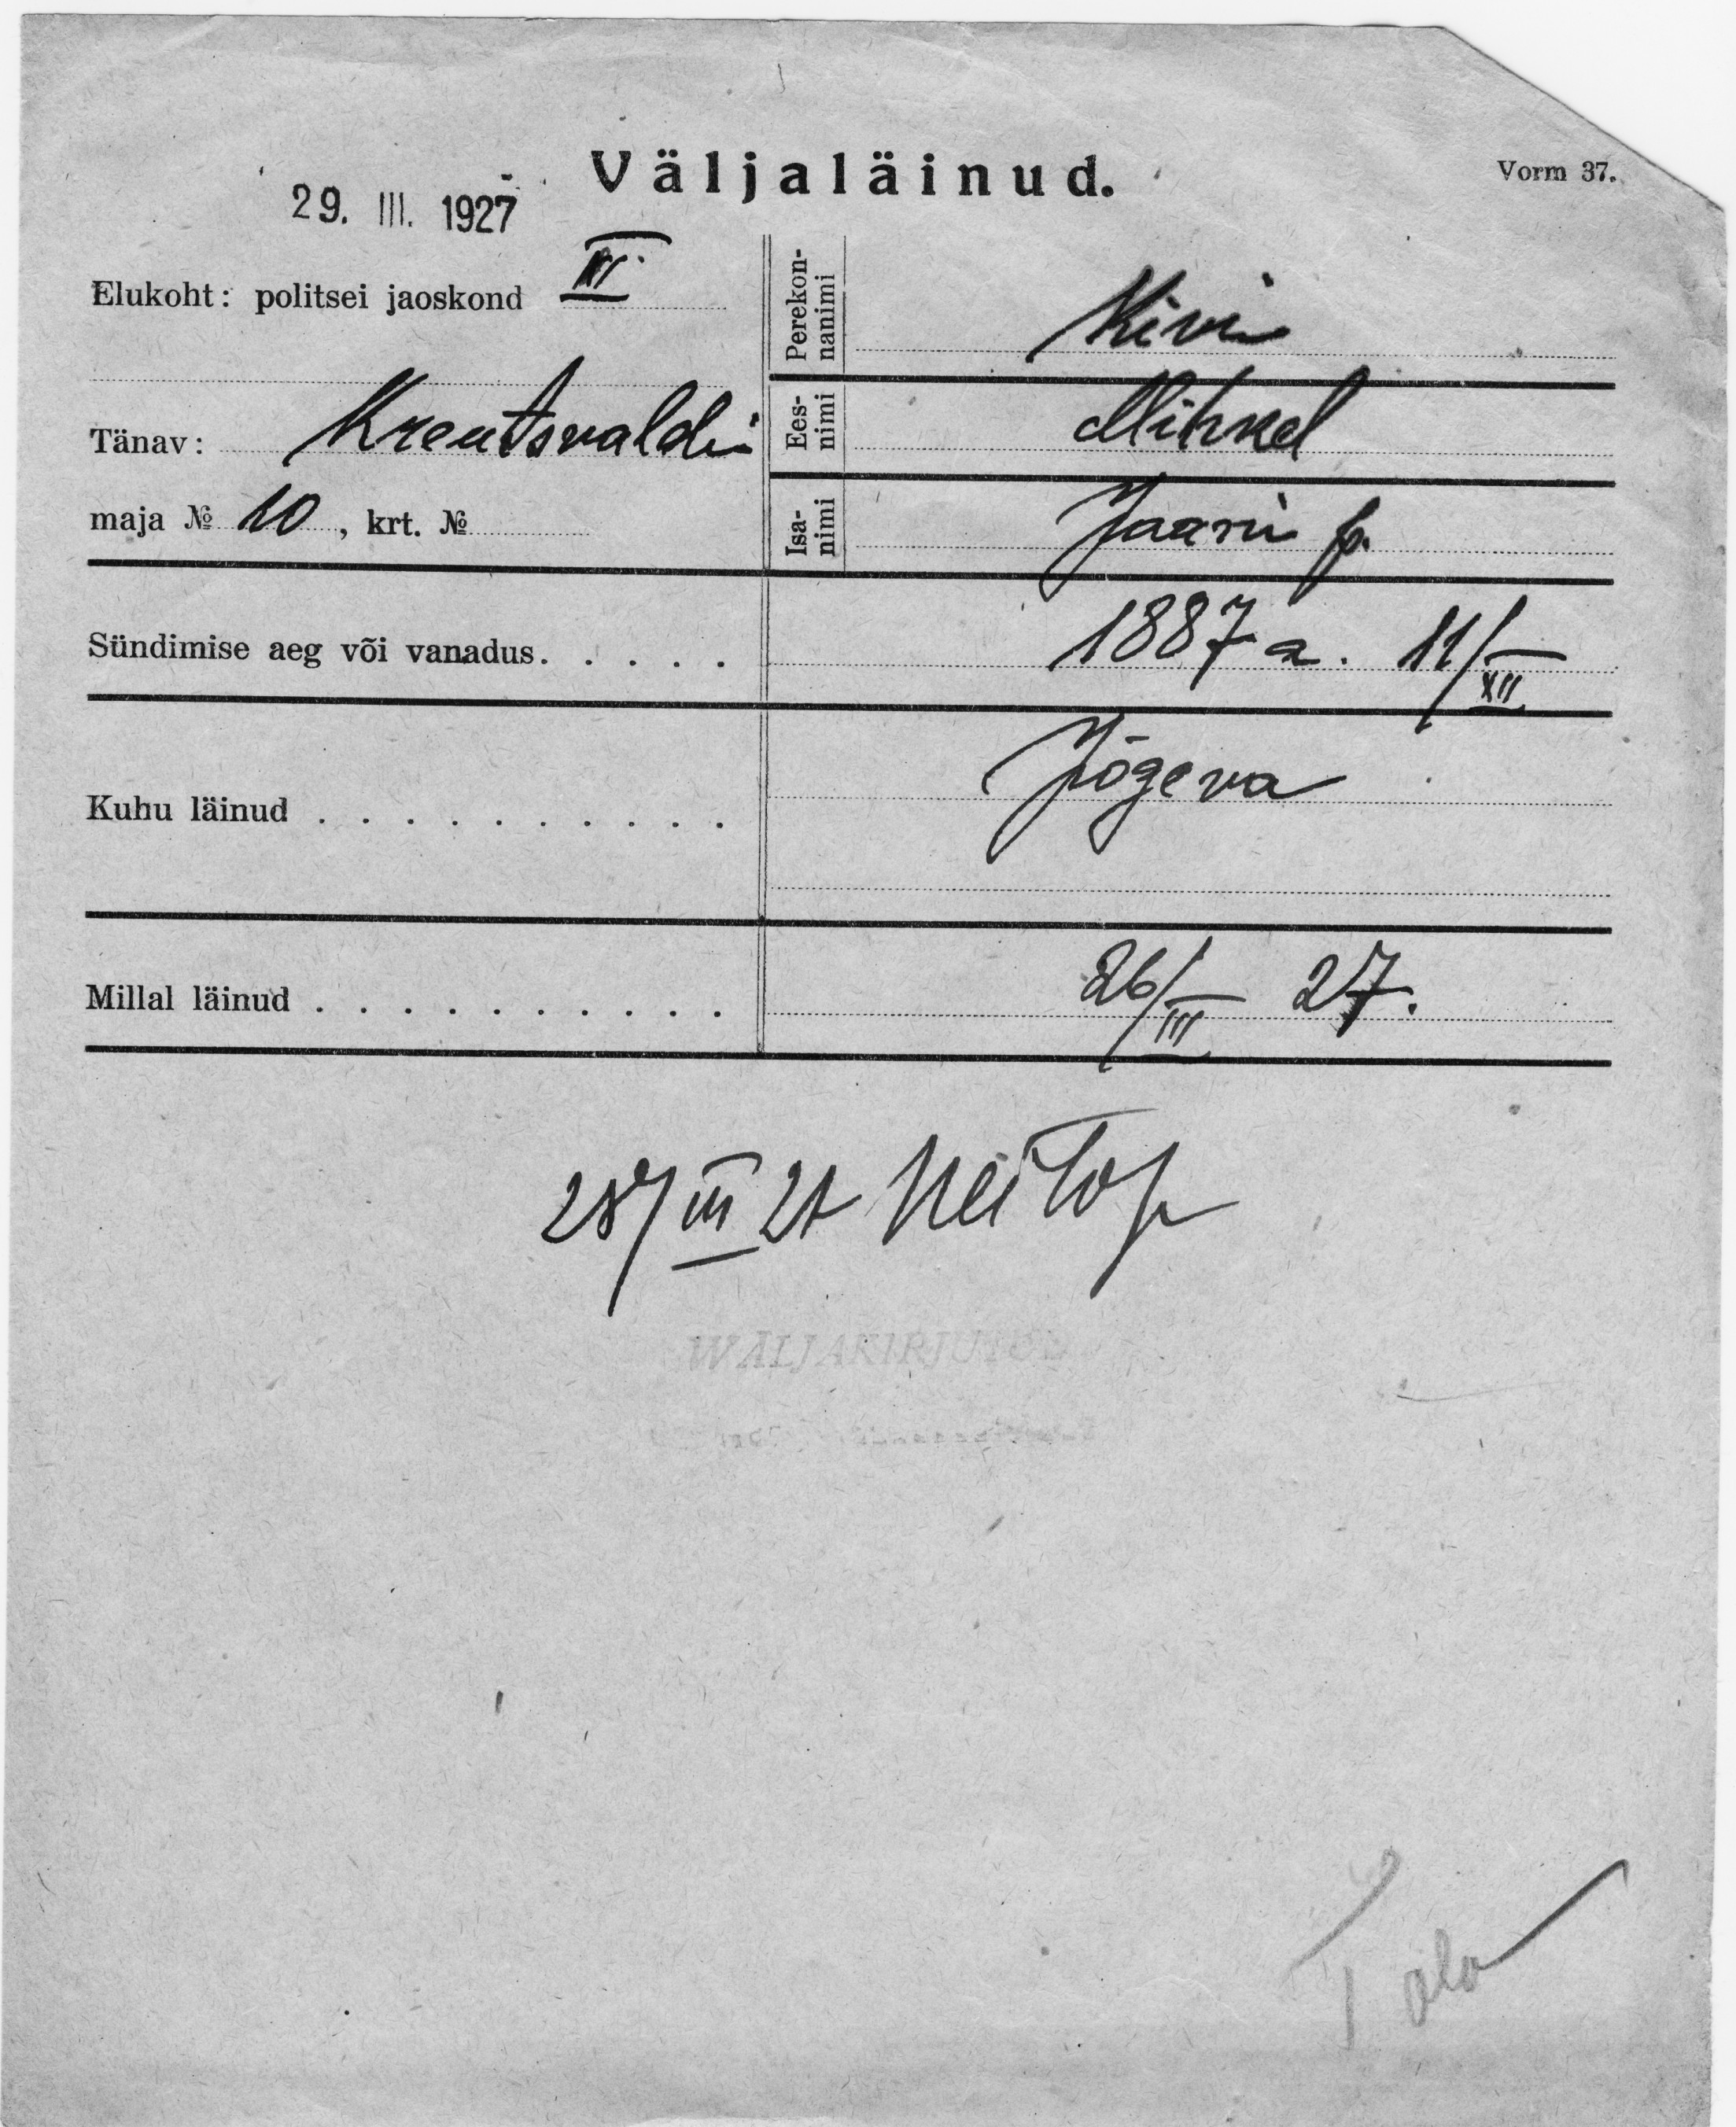 Väljaläinud.
Vorm 37.
29. III. 1927
Elukoht: politsei jaoskond III
Tänav: Kreutsvaldi
maja № 10, krt. №
Perekon-
nanimi
Kivi
Ees-
nimi
Mihkel
Isa-
nimi
Jaani p.
Sündimise aeg või vanadus. . . . . 1887 a. 11/XII
Kuhu läinud . . . . . . . . . . Jõgeva
Millal läinud . . . . . . . . . . 26/III 27.
28/III 27
WÄLJAKIRJUTUD